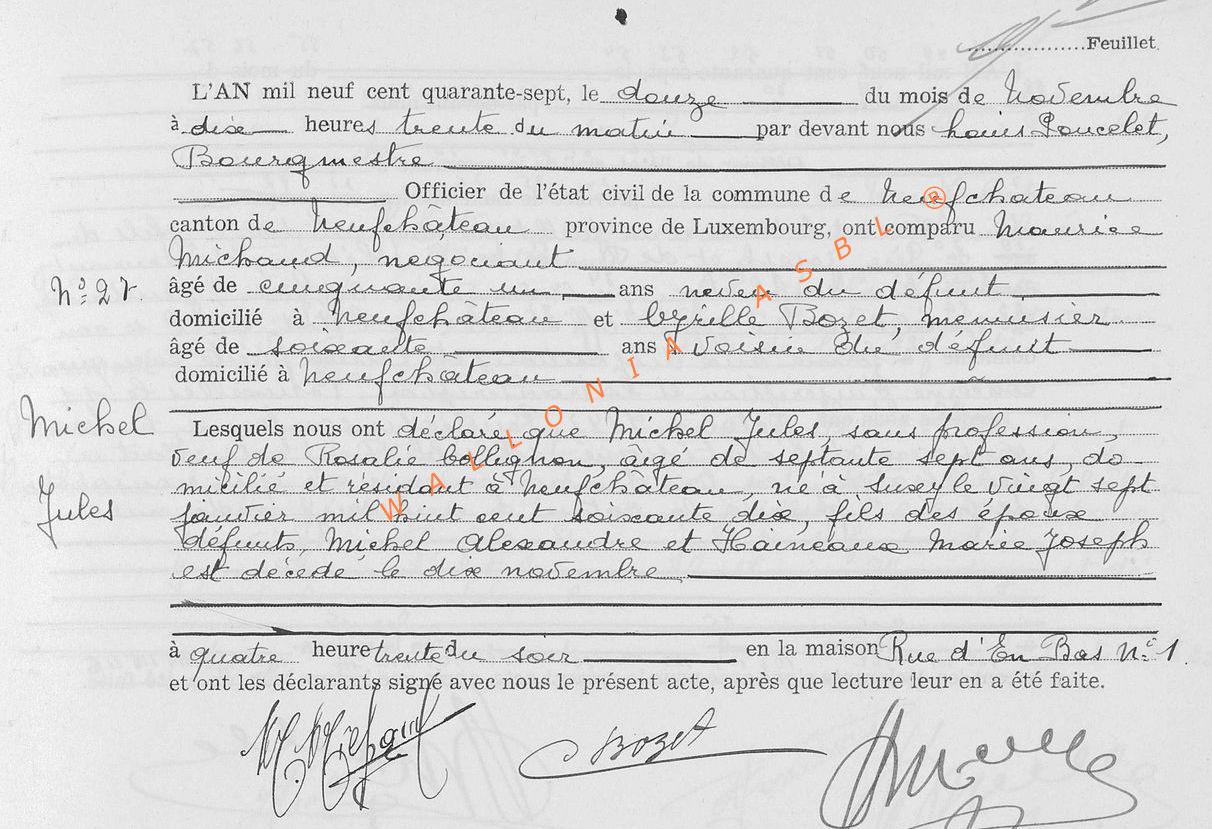 Feuillet.
L'AN mil neuf cent quarante-sept, le douze du mois de Novembre
à dix heures trente du matin par devant nous Louis Poncelet,
Bourgmestre
Officier de l'état civil de la commune de Neufchateau
canton de Neufchâteau province de Luxembourg, ont comparu Maurice
Michaud, negociant
N° 27. âgé de cinquante un ans neveu du défunt
domicilié à Neufchâteau et Cyrille Bozet, menuisier
âgé de soixante ans voisin du défunt
domicilié à Neufchâteau
Michel Jules
Lesquels nous ont déclaré que Michel Jules, sans profession,
veuf de Rosalie Collignon, âgé de septante sept ans, do
micilié et résidant à Neufchâteau, né à Suxy le vingt sept
janvier mil huit cent soixante dix, fils des époux
défunts, Michel Alexandre et Haineaux Marie Joseph
est décédé le dix novembre
à quatre heure trente du soir en la maison Rue d'En Bas N° 1.
et ont les déclarants signé avec nous le présent acte, après que lecture leur en a été faite.
Bozet
WALLONIA ASBL ®